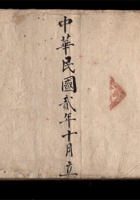 中華民國貳年十月立